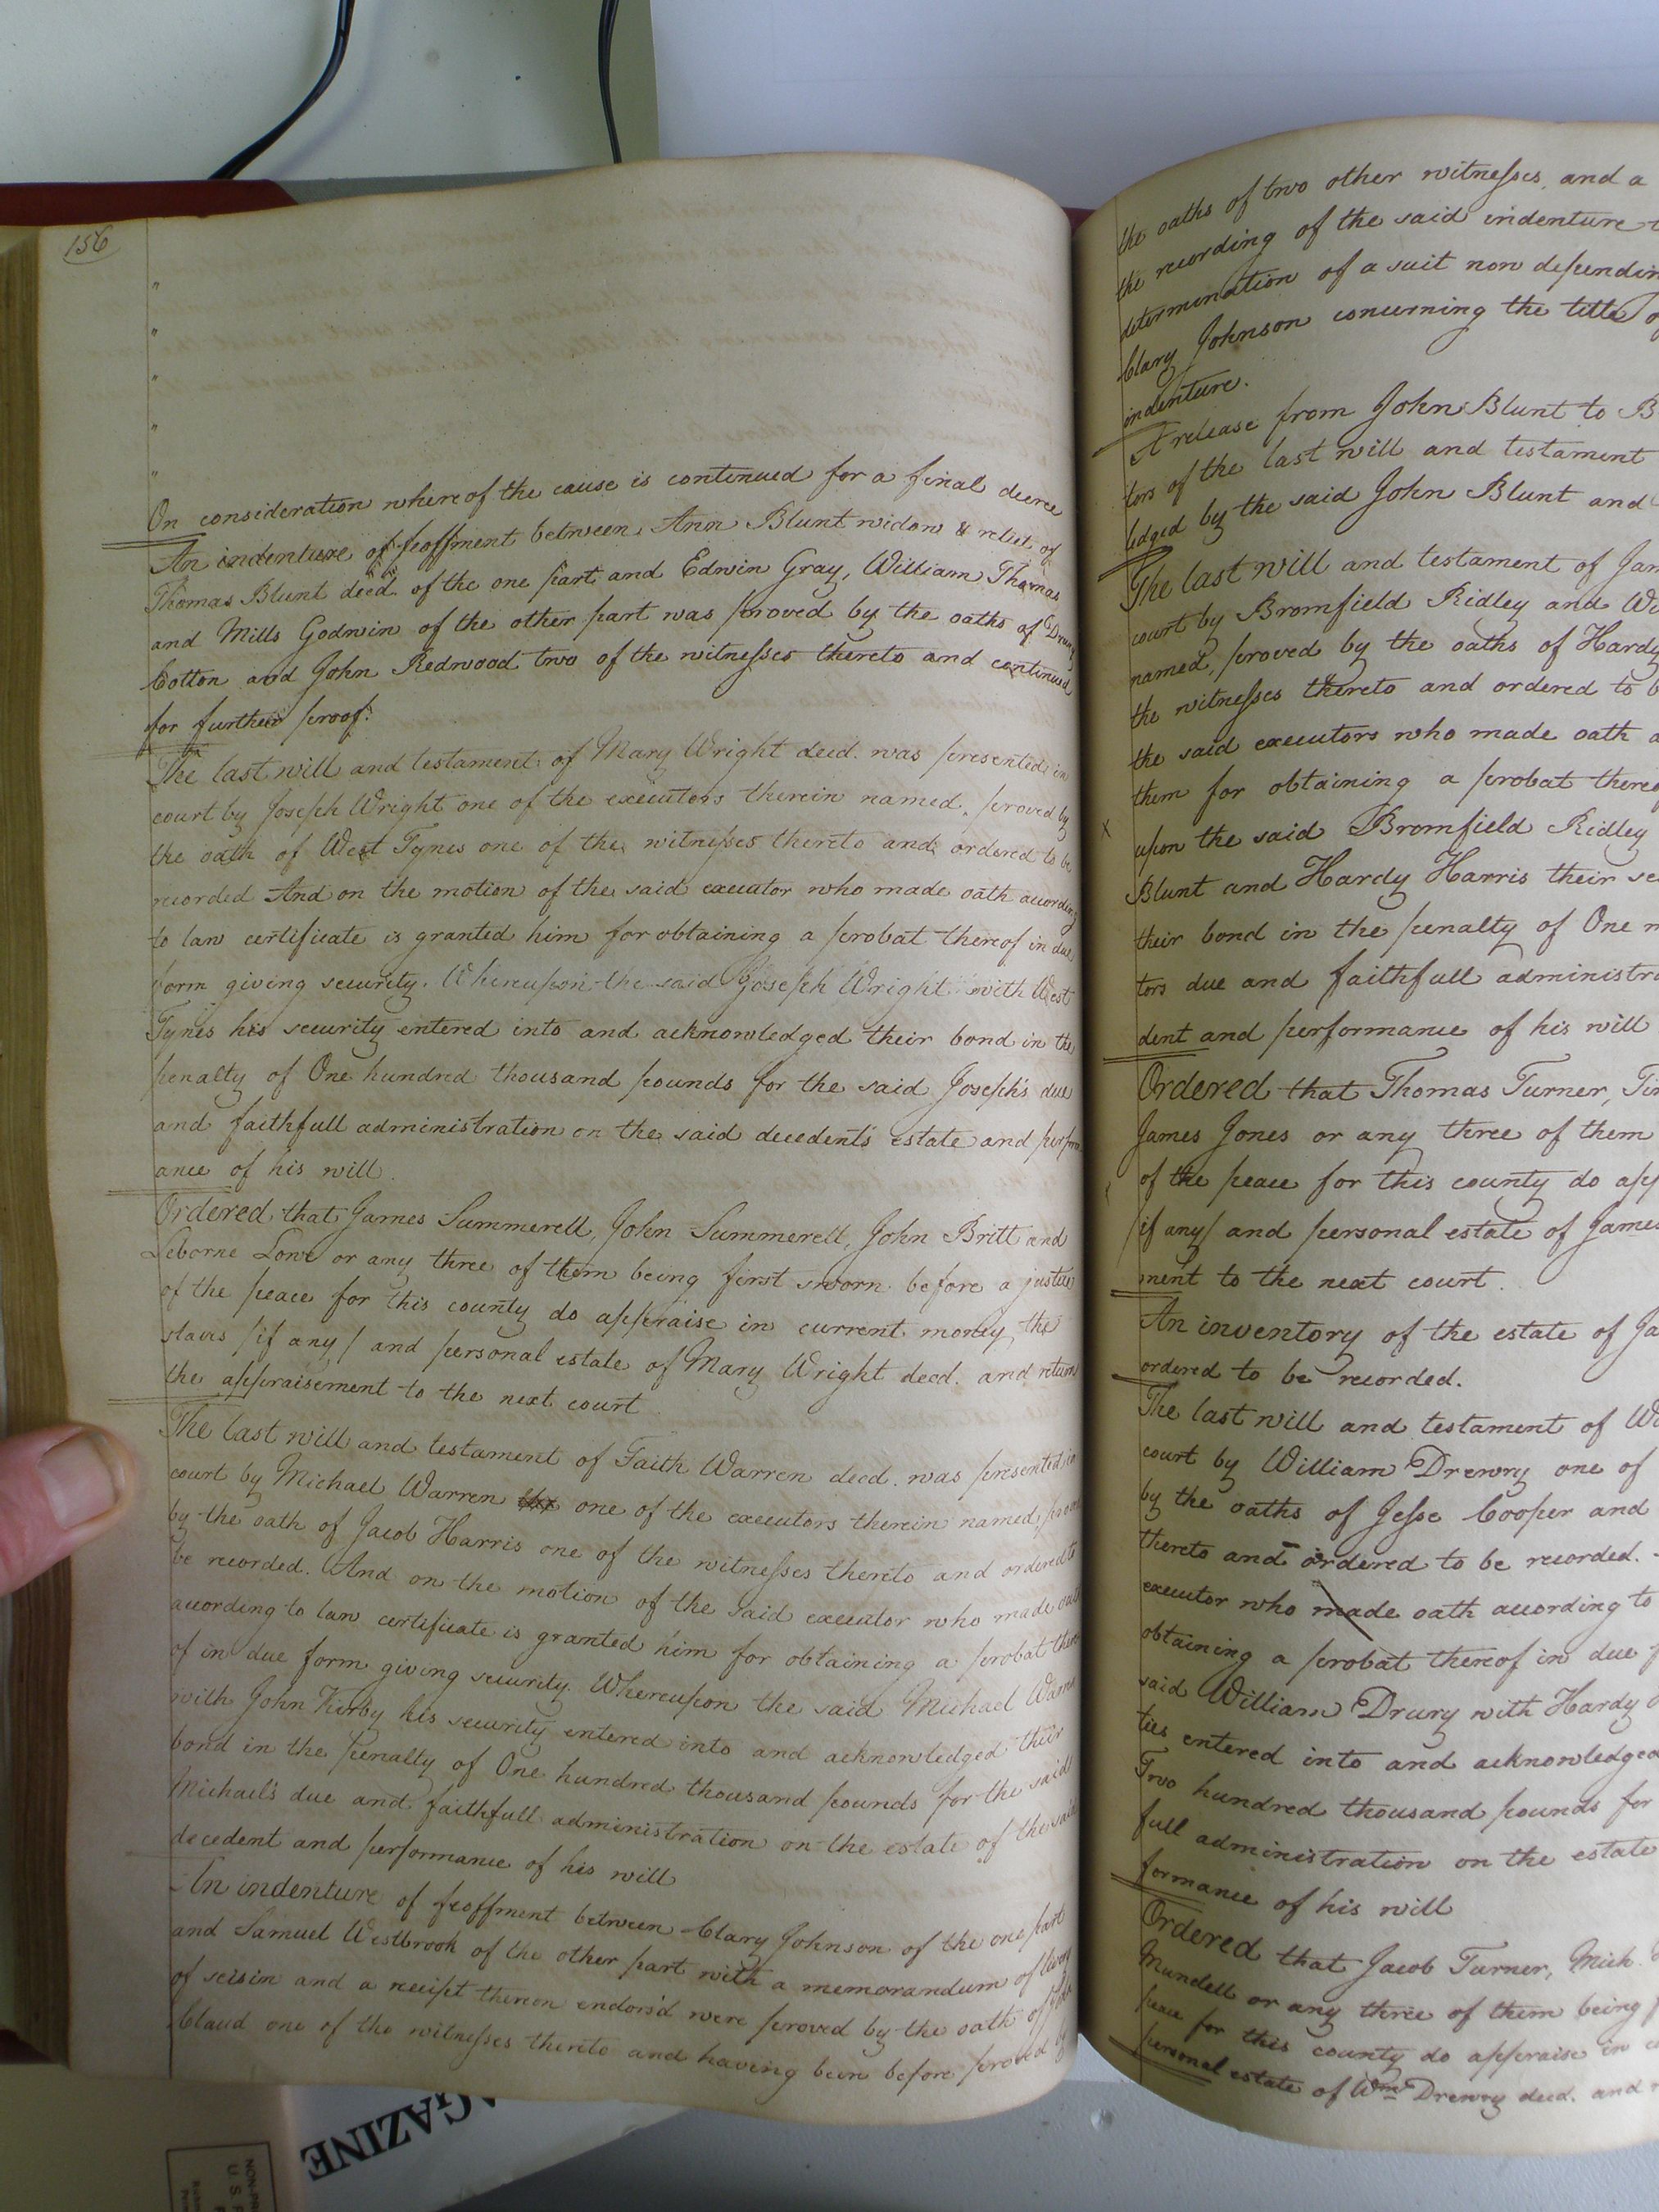 156
"
"
"
"
"
On consideration whereof the cause is continued for a final decree
An indenture of feoffment between Ann Blunt widow & relict of
Thomas Blunt decd. of the one part and Edwin Gray, William Thomas
and Mills Godwin of the other part was proved by the oaths of Drury
Cotton and John Redwood two of the witnesses thereto and continued
for further proof.
The last will and testament of Mary Wright decd. was presented in
court by Joseph Wright one of the executors therein named, proved by
the oath of West Tynes one of the witnesses thereto and ordered to be
recorded And on the motion of the said executor who made oath according
to law certificate is granted him for obtaining a probat thereof in due
form giving security. Whereupon the said Joseph Wright with West
Tynes his security entered into and acknowledged their bond in the
penalty of One hundred thousand pounds for the said Joseph's due
and faithfull administration on the said decedent's estate and perform
ance of his will.
Ordered that James Summerell, John Summerell, John Britt and
Leborne Lowe or any three of them being first sworn before a justice
of the peace for this county do appraise in current money the
slaves /if any/ and personal estate of Mary Wright decd. and return
the appraisement to the next court.
The last will and testament of Faith Warren decd. was presented in
court by Michael Warren one of the executors therein named, proved
by the oath of Jacob Harris one of the witnesses thereto and ordered to
be recorded. And on the motion of the said executor who made oath
according to law certificate is granted him for obtaining a probat there
of in due form giving security. Whereupon the said Michael Warren
with John Kirby his security entered into and acknowledged their
bond in the penalty of One hundred thousand pounds for the said
Michael's due and faithfull administration on the estate of the said
decedent and performance of his will
An indenture of feoffment between Clary Johnson of the one part
and Samuel Westbrook of the other part with a memorandum of livery
of seisin and a receipt thereon endors'd were proved by the oath of John
Claud one of the witnesses thereto and having been before proved by
the oaths of two other witnesses, and a
the recording of the said indenture
determination of a suit now dependin
Clary Johnson concerning the title of
indenture.
A release from John Blunt to B
tors of the last will and testament
ledged by the said John Blunt and
The last will and testament of Jam
court by Bromfield Ridley and Wi
named, proved by the oaths of Hardy
the witnesses thereto and ordered to b
the said executors who made oath a
them for obtaining a probat thereof
x
upon the said Bromfield Ridley
Blunt and Hardy Harris their se
their bond in the penalty of One m
tors due and faithfull administra
dent and performance of his will
Ordered that Thomas Turner, Tim
James Jones or any three of them
of the peace for this county do app
/if any/ and personal estate of James
ment to the next court.
An inventory of the estate of Ja
ordered to be recorded.
The last will and testament of Wi
court by William Drewry one of
by the oaths of Jesse Cooper and
thereto and ordered to be recorded.
executor who made oath according to
obtaining a probat thereof in due f
said William Drury with Hardy
ties entered into and acknowledged
Two hundred thousand pounds for
full administration on the estate
formance of his will
Ordered that Jacob Turner, Mich.
Mundell or any three of them being f
peace for this county do appraise in c
personal estate of Wm. Drewry decd. and
AGAZINE
NON-PR
U. S. P